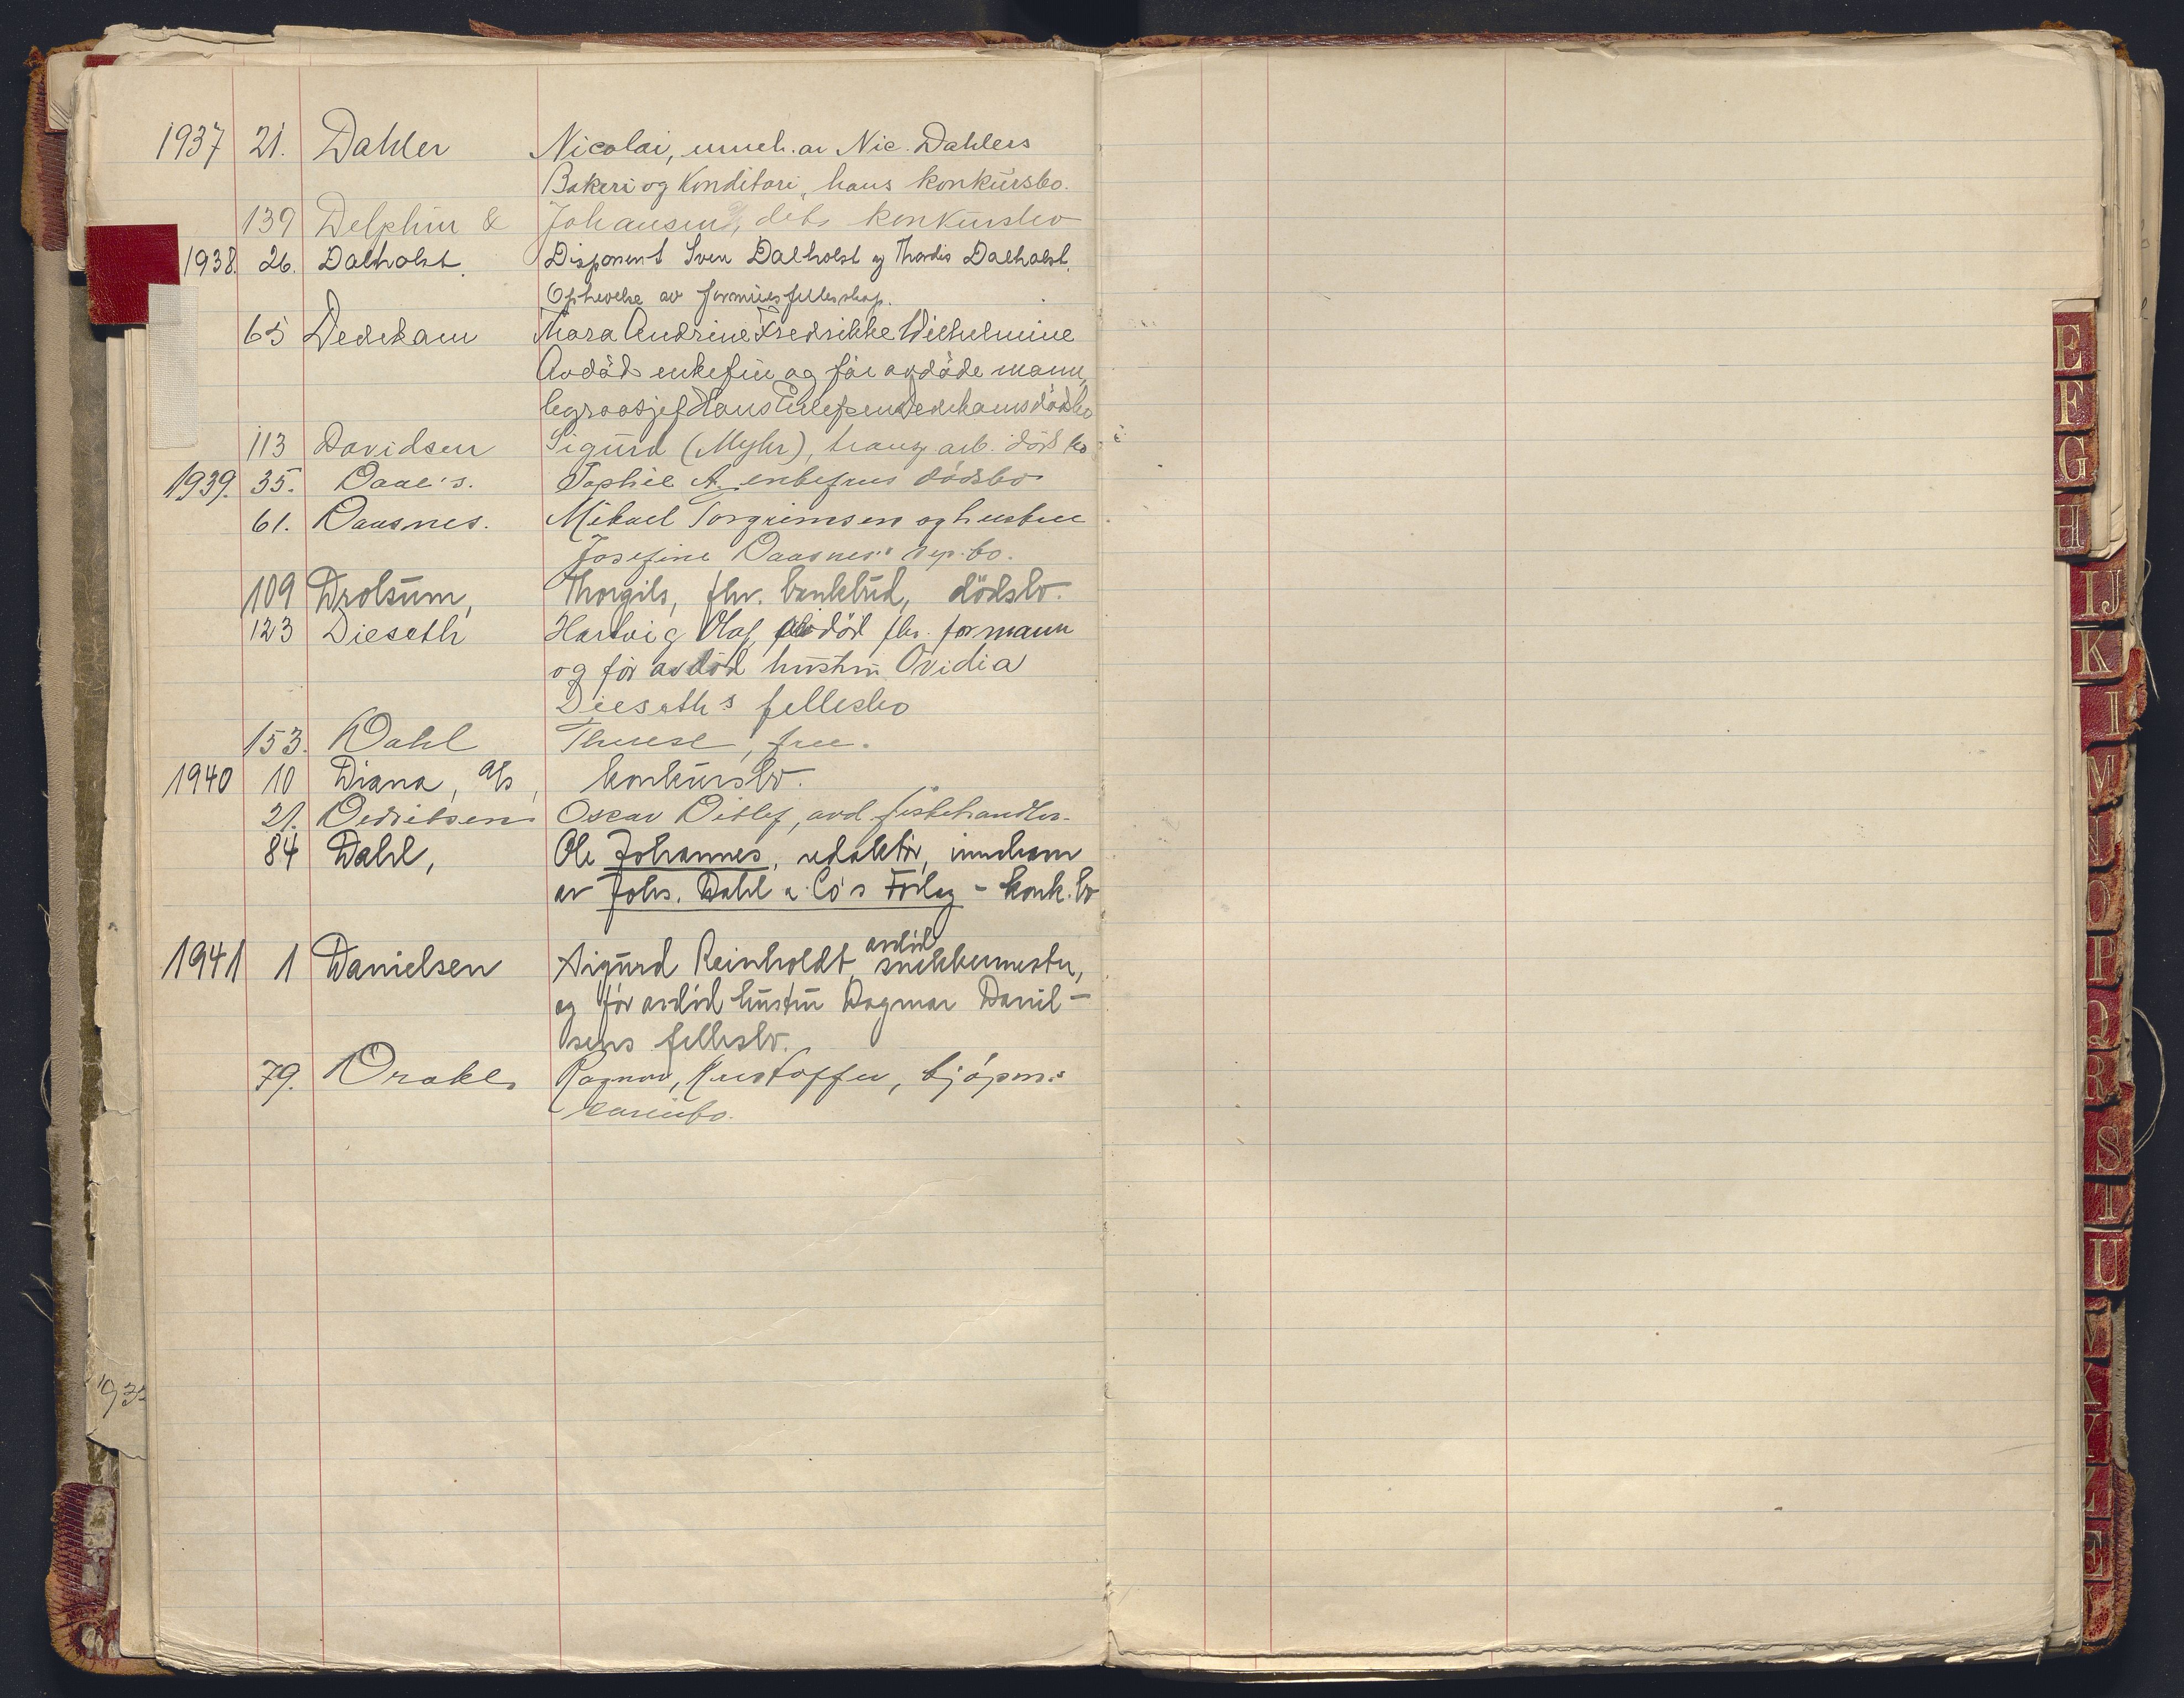 1937 21. Dahler Nicolai, inneh. av Nic. Dahlers
Bakeri og Konditori, hans konkursbo.
139 Delphin & Johansen, dets konkursbo
1938. 26. Dalholst. Disponent Sven Dalholst og Thordis Dalholst.
Ophevelse av formuesfellesskap.
65 Dedekam Thora Andrine Fredrikke Wilhelmine
Avdöds enkefru og för avdöde mann,
Hans Dedekams dödsbo
113 Davidsen Sigurd (Myhr), arb. döds bo
1939. 35. Daae's. Sophie A. enkefrus dödsbo
61. Daasnes. Mikael Torgrimsen og hustru
Josefine Daasnes' sep. bo.
109 Drolsum, Thorgils, fhv. bankbud, dödsbo.
123 Dieseth Hartvig Olaf, avdöd fhv. formann
og för avdöd hustru Ovidia
Dieseth's fellesbo
153. Dahl Therese, frue.
1940 10 Diana, A/s, konkursbo.
21. Didriksen Oscar Ditlef, avd. fiskehandler.
84 Dahl, Ole Johannes, redaktör, innehaver
av Johs. Dahl & Co's Forlag - konk. bo
1941 1 Danielsen Sigurd Reinholdt, avdöd snekkermester,
og för avdöd hustru Dagmar Daniel-
sens fellesbo.
79. Drake, Ragnar, Kristoffer, kjöpm.s
1932
E
F
G
H
IJ
K
L
M
N
O
P
Q
R
S
T
U
V
X
Y
Z
Æ